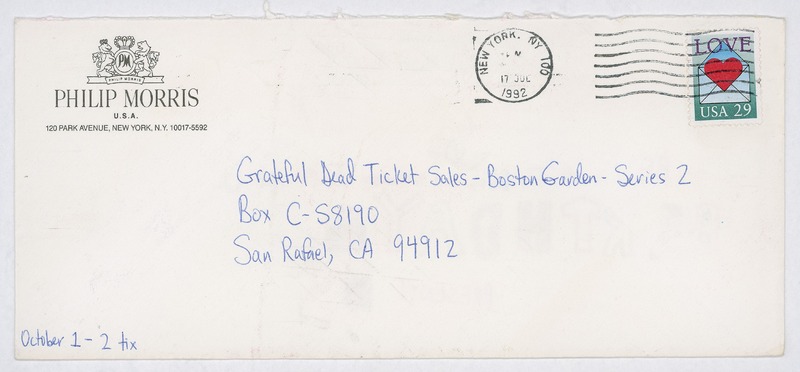 PM
PHILIP MORRIS
PHILIP MORRIS
U.S.A.
120 PARK AVENUE, NEW YORK, N.Y. 10017-5592
NEW YORK, NY 100
17 JUL
1992
LOVE
USA 29
Grateful Dead Ticket Sales - Boston Garden - Series 2
Box C-S8190
San Rafael, CA 94912
October 1 - 2 tix